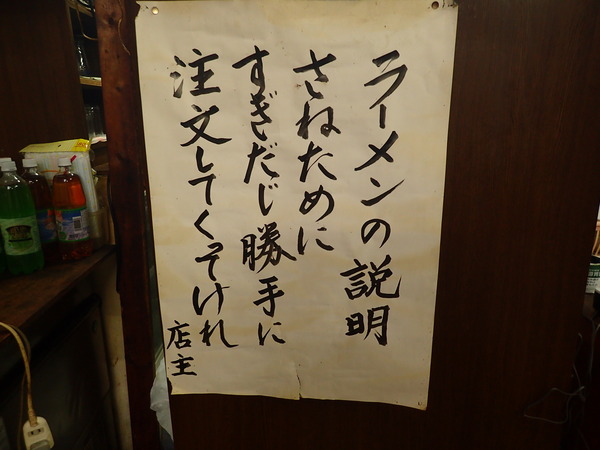 ラーメンの説明
さねために
すぎだじ勝手に
注文してくそけれ
店主